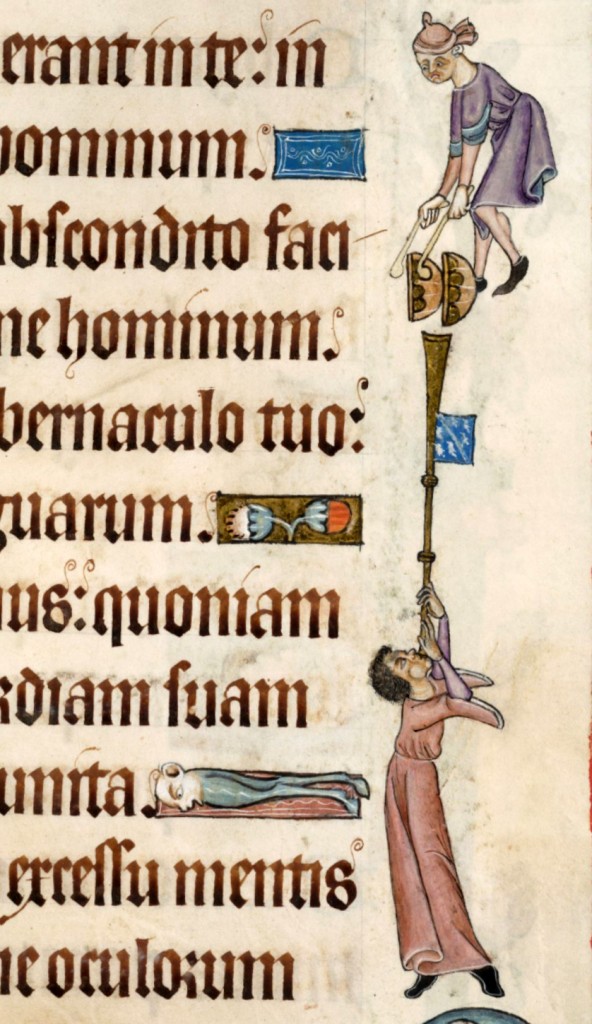 erant in te: in
hominum.
abscondito faci
ne hominum.
bernaculo tuo:
guarum.
nus: quoniam
rdiam suam
unita.
excessu mentis
ne oculorum